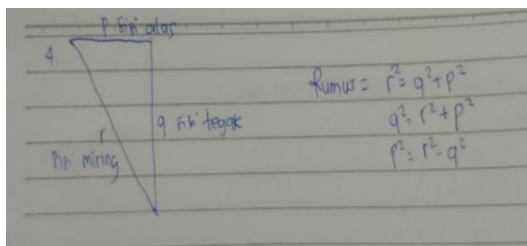 p sisi alas
4.
q sisi tegak
r
sisi miring
Rumus = r² = q² + p²
q² = r² + p²
p² = r² - q²